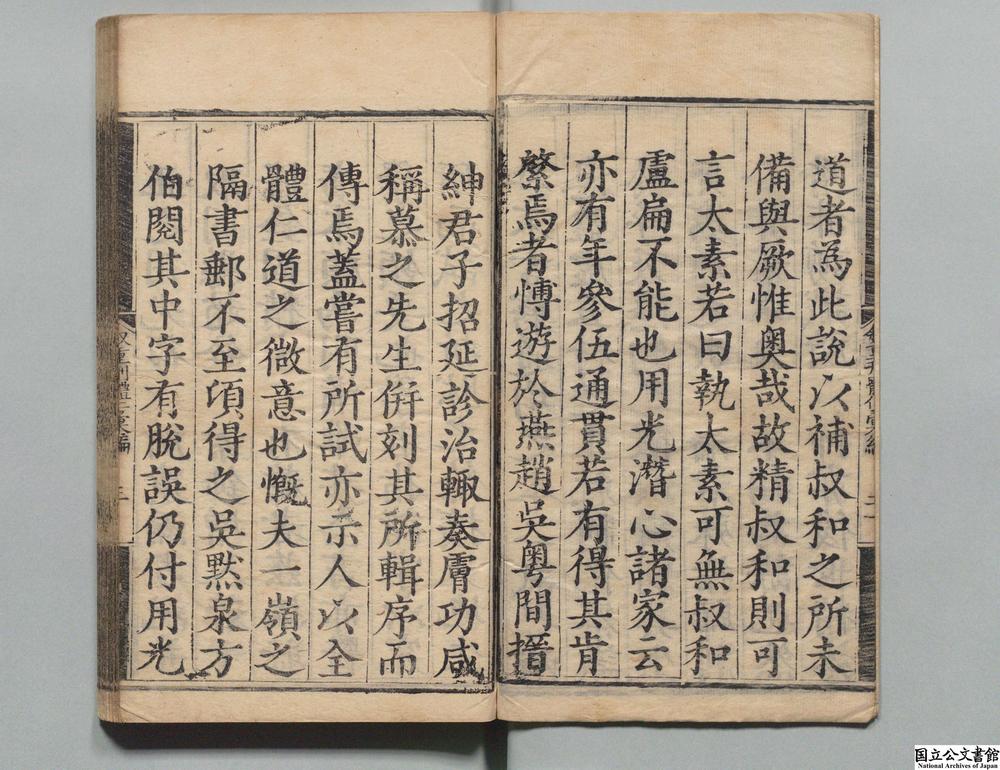 道者為此說以補叔和之所未
備與厥惟奧哉故精叔和則可
言太素若曰執太素可無叔和
盧扁不能也用光潛心諸家云
亦有年參伍通貫若有得其肯
綮焉者慱遊於燕趙吳粵間搢
紳君子招延診治輙奏膚功咸
稱慕之先生倂刻其所輯序而
傳焉蓋嘗有所試亦示人以全
體仁道之微意也慨夫一嶺之
隔書郵不至頃得之吳默泉方
伯閱其中字有脫誤仍付用光
国立公文書館
National Archives of Japan